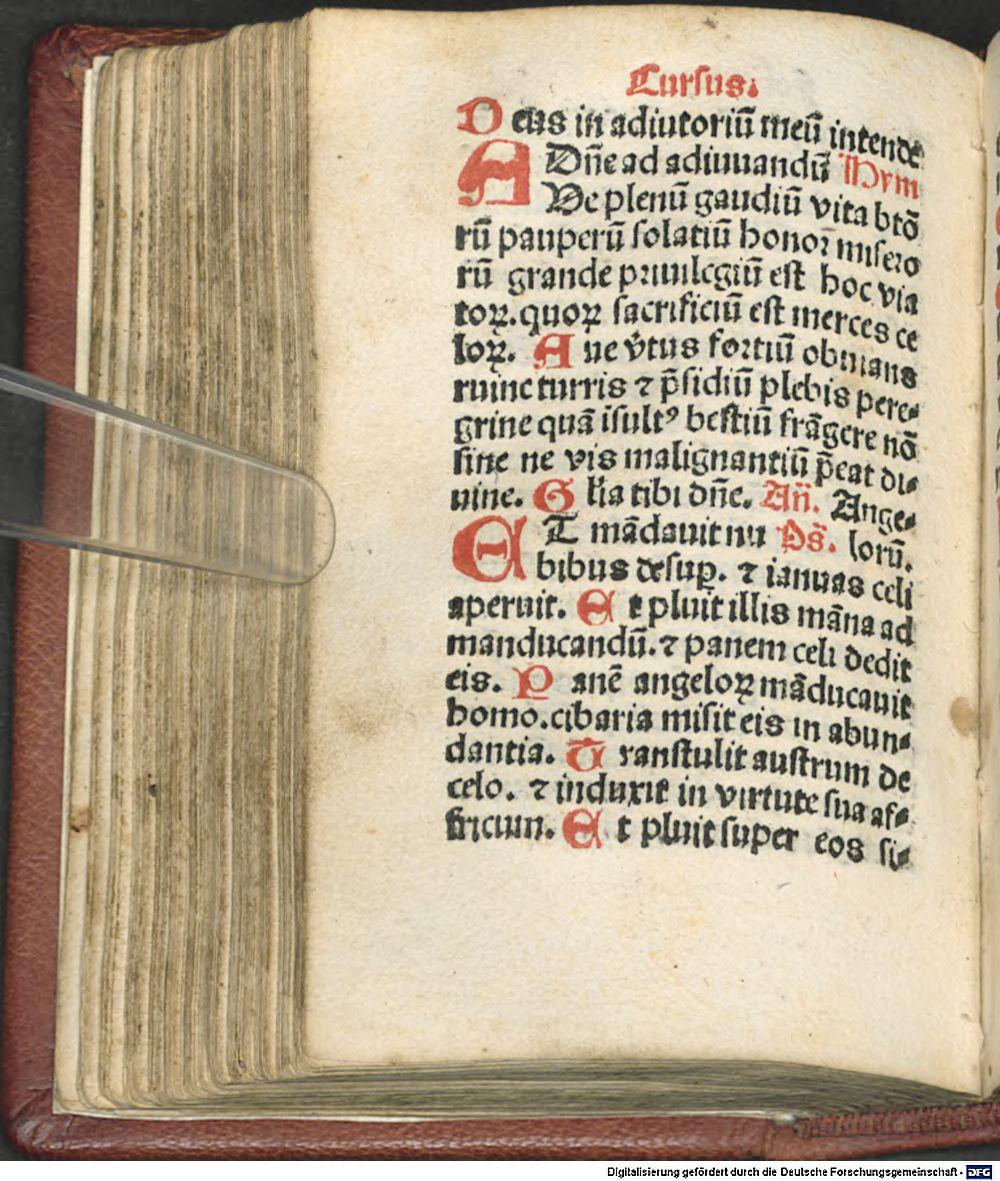 Cursus.
Deus in adiutoriū meū intende
Dn̄e ad adiuuandū Hym
AVe plenū gaudiū vita btō
rū pauperū solatiū honoꝛ miseꝛo
rū grande pꝛiuilegiū est hoc via
toꝝ. quoꝝ sacrificiū est merces ce
loꝝ. Aue v̄tus foꝛtiū obuians
ruine turris ⁊ p̄sidiū plebis pere⸗
grine quā isultꝰ bestiū frāgere nō
sine ne vis malignantiū p̄eat di⸗
uine. Glīa tibi dn̄e. An̄. Ange⸗
ET mādauit nu Ps̄. lorū.
bibus desuꝑ. ⁊ ianuas celi
aperuit. Et pluit illis māna ad
manducandū. ⁊ panem celi dedit
eis. Panē angeloꝝ māducauit
homo. cibaria misit eis in abun⸗
dantia. Transtulit austrum de
celo. ⁊ induxit in virtute sua af⸗
fricum. Et pluit super eos si⸗
Digitalisierung gefördert durch die Deutsche Forschungsgemeinschaft - DFG